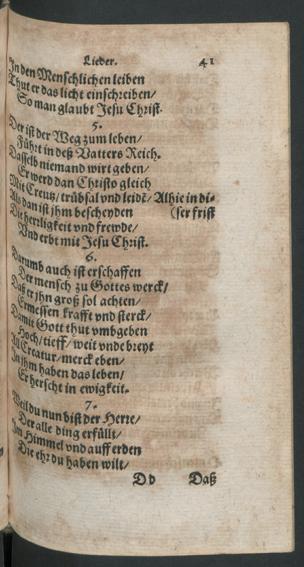 Lieder. 41
In den Menschlichen leiben
Thut er das licht einschreiben/
So man glaubt Jesu Christ.
5.
Der ist der Weg zum leben/
Führt in deß Vatters Reich.
Dasselb niemand wirt geben/
Er werd dan Christo gleich
Mit Creutz/ trübsal vnd leidē/ Alhie in di-
Als dan ist jhm bescheyden (ser frist
Die herrligkeit vnd frewde/
Vnd erbt mit Jesu Christ.
6.
Darumb auch ist erschaffen
Der mensch zu Gottes werck/
Daß er jhn groß sol achten/
Ermessen krafft vnd sterck/
Damit Gott thut vmbgeben
Hoch/ tieff/ weit vnde breyt
All Creatur/ merck eben/
In jhm haben das leben/
Er herscht in ewigkeit.
7.
Weil du nun bist der Herre/
Der alle ding erfüllt/
Im Himmel vnd auff erden
Die ehr du haben wilt/
Dd Daß